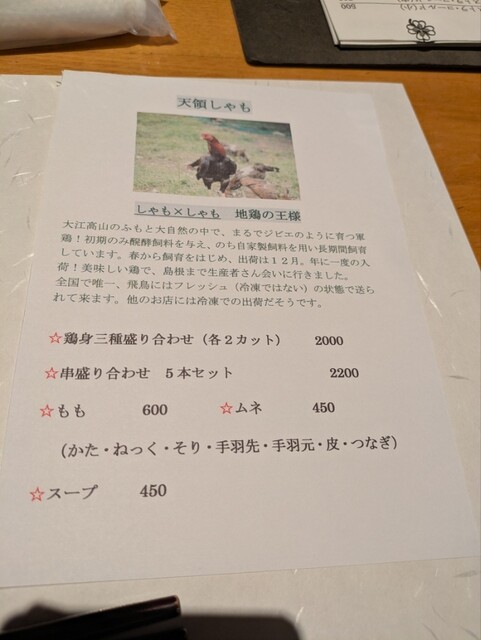 天領しゃも
しゃも×しゃも　地鶏の王様
大江高山のふもと大自然の中で、まるでジビエのように育つ軍
鶏！初期のみ醗酵飼料を与え、のち自家製飼料を用い長期間飼育
しています。春から飼育をはじめ、出荷は１２月。年に一度の入
荷！美味しい鶏で、島根まで生産者さん会いに行きました。
全国で唯一、飛鳥にはフレッシュ（冷凍ではない）の状態で送ら
れて来ます。他のお店には冷凍での出荷だそうです。
☆鶏身三種盛り合わせ（各２カット）　2000
☆串盛り合わせ　５本セット　2200
☆もも　600　☆ムネ　450
（かた・ねっく・そり・手羽先・手羽元・皮・つなぎ）
☆スープ　450
500